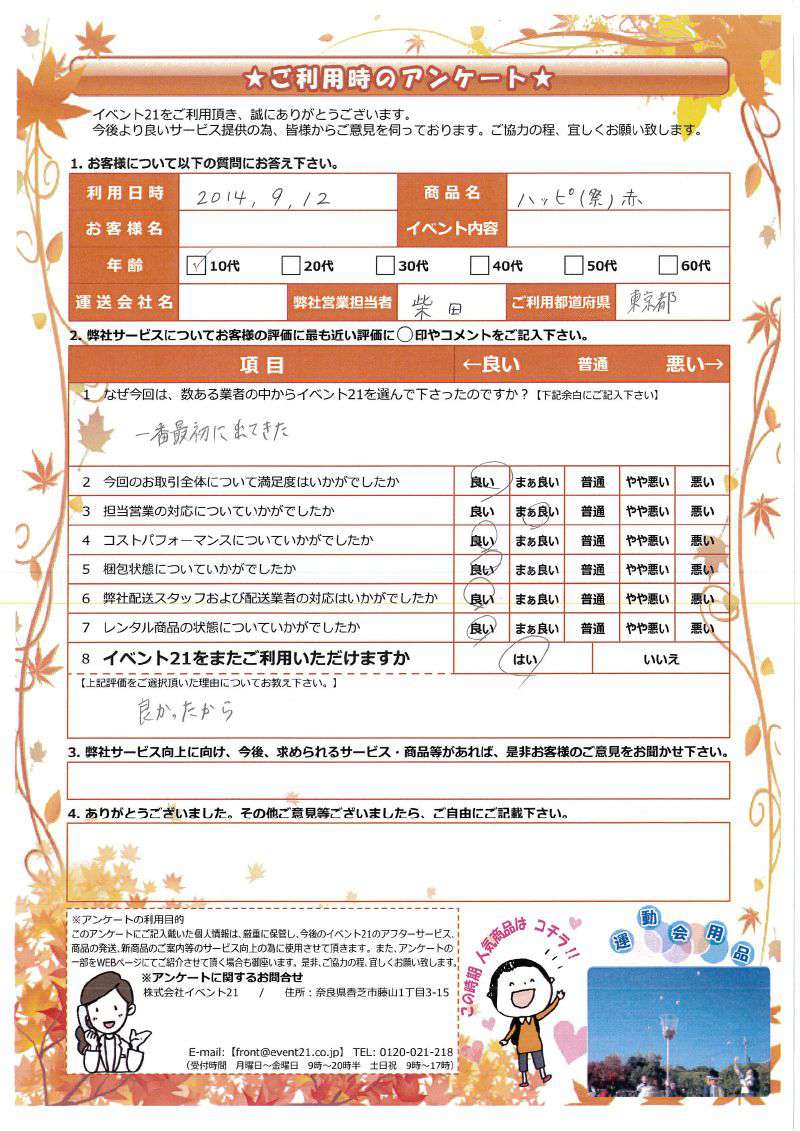 ★ご利用時のアンケート★
イベント21をご利用頂き、誠にありがとうございます。
今後より良いサービス提供の為、皆様からご意見を伺っております。ご協力の程、宜しくお願い致します。
1. お客様について以下の質問にお答え下さい。
利用日時 2014,9,12 商品名 ハッピ(祭)赤
お客様名 イベント内容
年齢 ✓10代 20代 30代 40代 50代 60代
運送会社名 弊社営業担当者 柴田 ご利用都道府県 東京都
2. 弊社サービスについてお客様の評価に最も近い評価に○印やコメントをご記入下さい。
項目 ←良い 普通 悪い→
1 なぜ今回は、数ある業者の中からイベント21を選んで下さったのですか？【下記余白にご記入下さい】
一番最初に出てきた
2 今回のお取引全体について満足度はいかがでしたか 良い まぁ良い 普通 やや悪い 悪い
3 担当営業の対応についていかがでしたか 良い まぁ良い 普通 やや悪い 悪い
4 コストパフォーマンスについていかがでしたか 良い まぁ良い 普通 やや悪い 悪い
5 梱包状態についていかがでしたか 良い まぁ良い 普通 やや悪い 悪い
6 弊社配送スタッフおよび配送業者の対応はいかがでしたか 良い まぁ良い 普通 やや悪い 悪い
7 レンタル商品の状態についていかがでしたか 良い まぁ良い 普通 やや悪い 悪い
8 イベント21をまたご利用いただけますか はい いいえ
【上記評価をご選択頂いた理由についてお教え下さい。】
良かったから
3. 弊社サービス向上に向け、今後、求められるサービス・商品等があれば、是非お客様のご意見をお聞かせ下さい。
4. ありがとうございました。その他ご意見等ございましたら、ご自由にご記載下さい。
※アンケートの利用目的
このアンケートにご記入戴いた個人情報は、厳重に保管し、今後のイベント21のアフターサービス、
商品の発送、新商品のご案内等のサービス向上の為に使用させて頂きます。また、アンケートの
一部をWEBページにてご紹介させて頂く場合も御座います。是非、ご協力の程、宜しくお願い致します。
※アンケートに関するお問合せ
株式会社イベント21 / 住所：奈良県香芝市藤山1丁目3-15
E-mail:【front@event21.co.jp】 TEL: 0120-021-218
（受付時間 月曜日～金曜日 9時～20時半 土日祝 9時～17時）
この時期 人気商品は コチラ!!
運動会用品